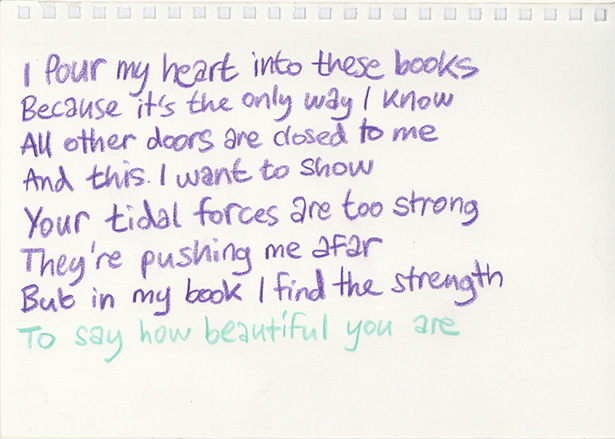 I Pour my heart into these books
Because it's the only way I know
All other doors are closed to me
And this I want to show
Your tidal forces are too strong
They're pushing me afar
But in my book I find the strength
To say how beautiful you are